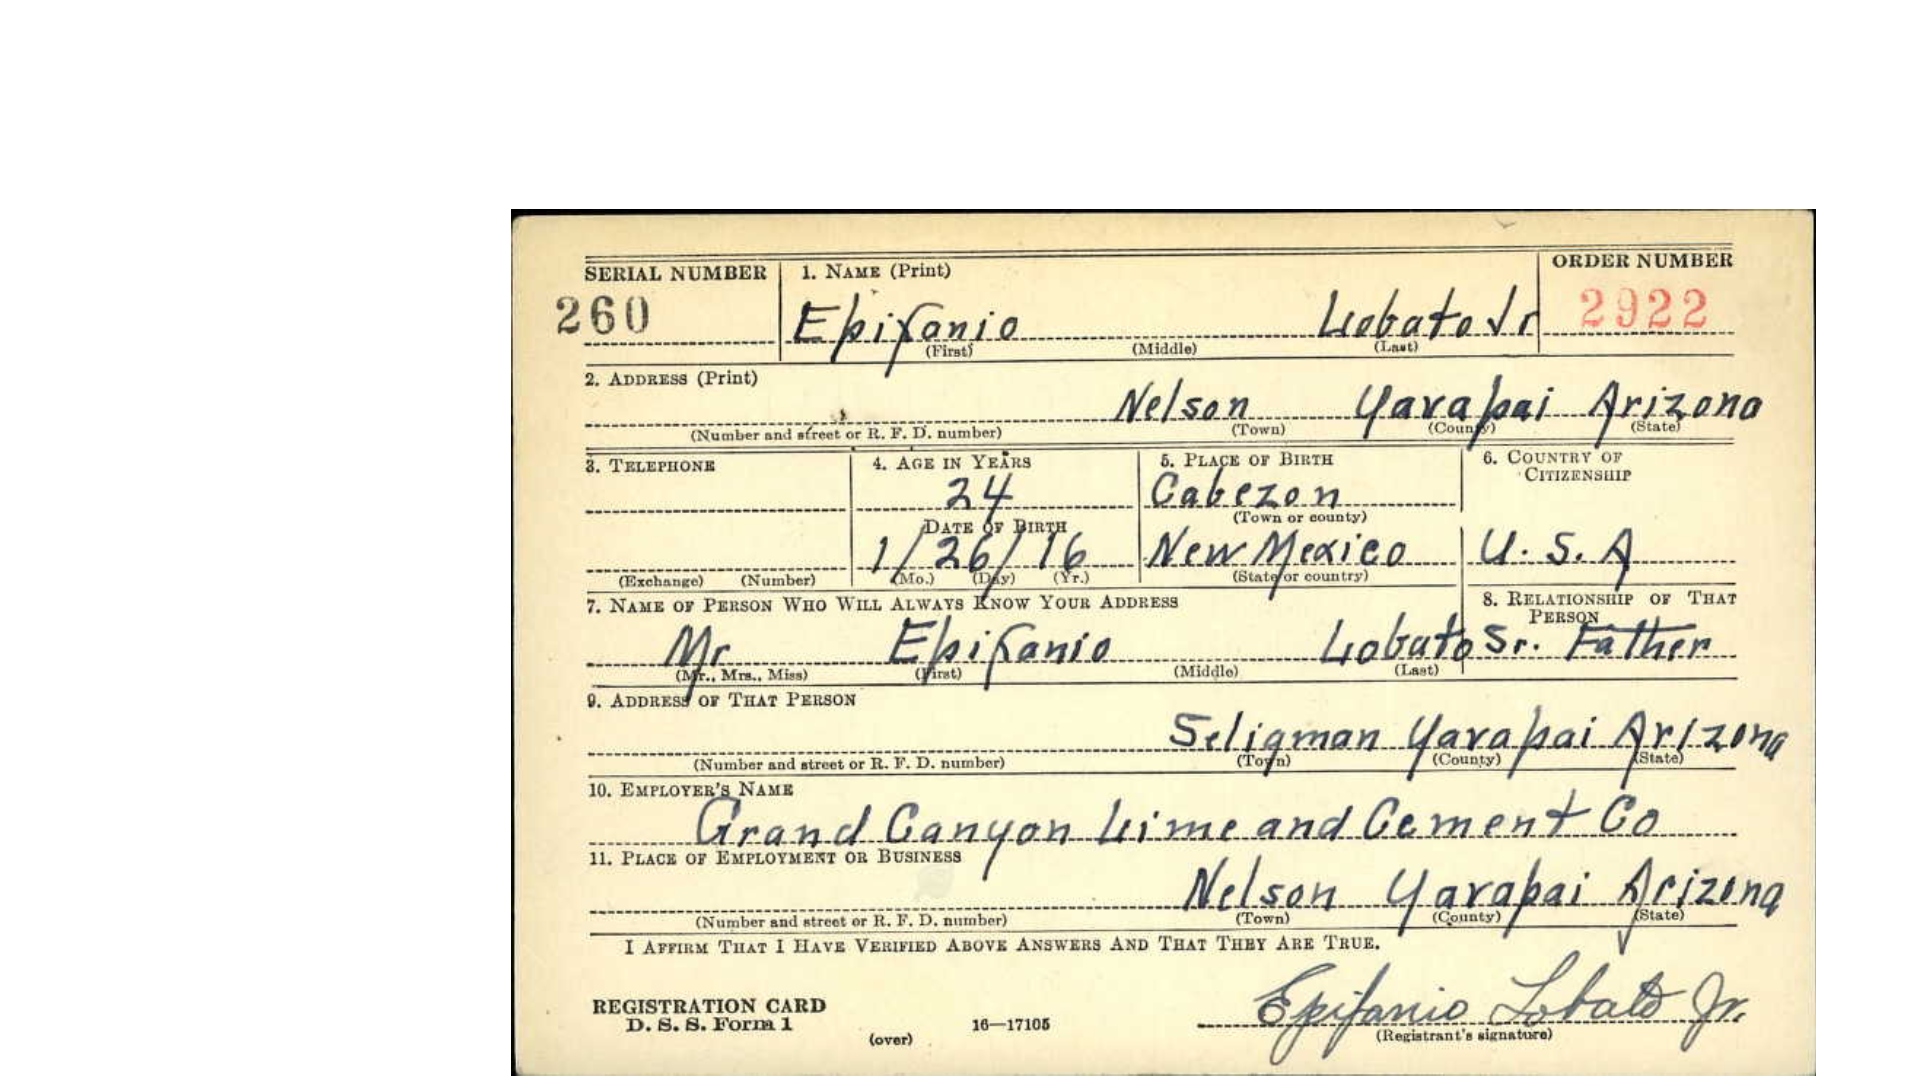 SERIAL NUMBER 1. NAME (Print) ORDER NUMBER
260 Epifanio Lobato Jr 2922
(First) (Middle) (Last)
2. ADDRESS (Print)
Nelson Yavapai Arizona
(Number and street or R. F. D. number) (Town) (County) (State)
3. TELEPHONE 4. AGE IN YEARS 5. PLACE OF BIRTH 6. COUNTRY OF
CITIZENSHIP
24 Cabezon
DATE OF BIRTH (Town or county)
1/26/16 New Mexico U.S.A
(Exchange) (Number) (Mo.) (Day) (Yr.) (State or country)
7. NAME OF PERSON WHO WILL ALWAYS KNOW YOUR ADDRESS 8. RELATIONSHIP OF THAT
PERSON
Mr Epifanio Lobato Sr. Father
(Mr., Mrs., Miss) (First) (Middle) (Last)
9. ADDRESS OF THAT PERSON
Seligman Yavapai Arizona
(Number and street or R. F. D. number) (Town) (County) (State)
10. EMPLOYER'S NAME
Grand Canyon Lime and Cement Co
11. PLACE OF EMPLOYMENT OR BUSINESS
Nelson Yavapai Arizona
(Number and street or R. F. D. number) (Town) (County) (State)
I AFFIRM THAT I HAVE VERIFIED ABOVE ANSWERS AND THAT THEY ARE TRUE.
REGISTRATION CARD Epifanio Lobato Jr.
D. S. S. Form 1 16—17105
(over) (Registrant's signature)